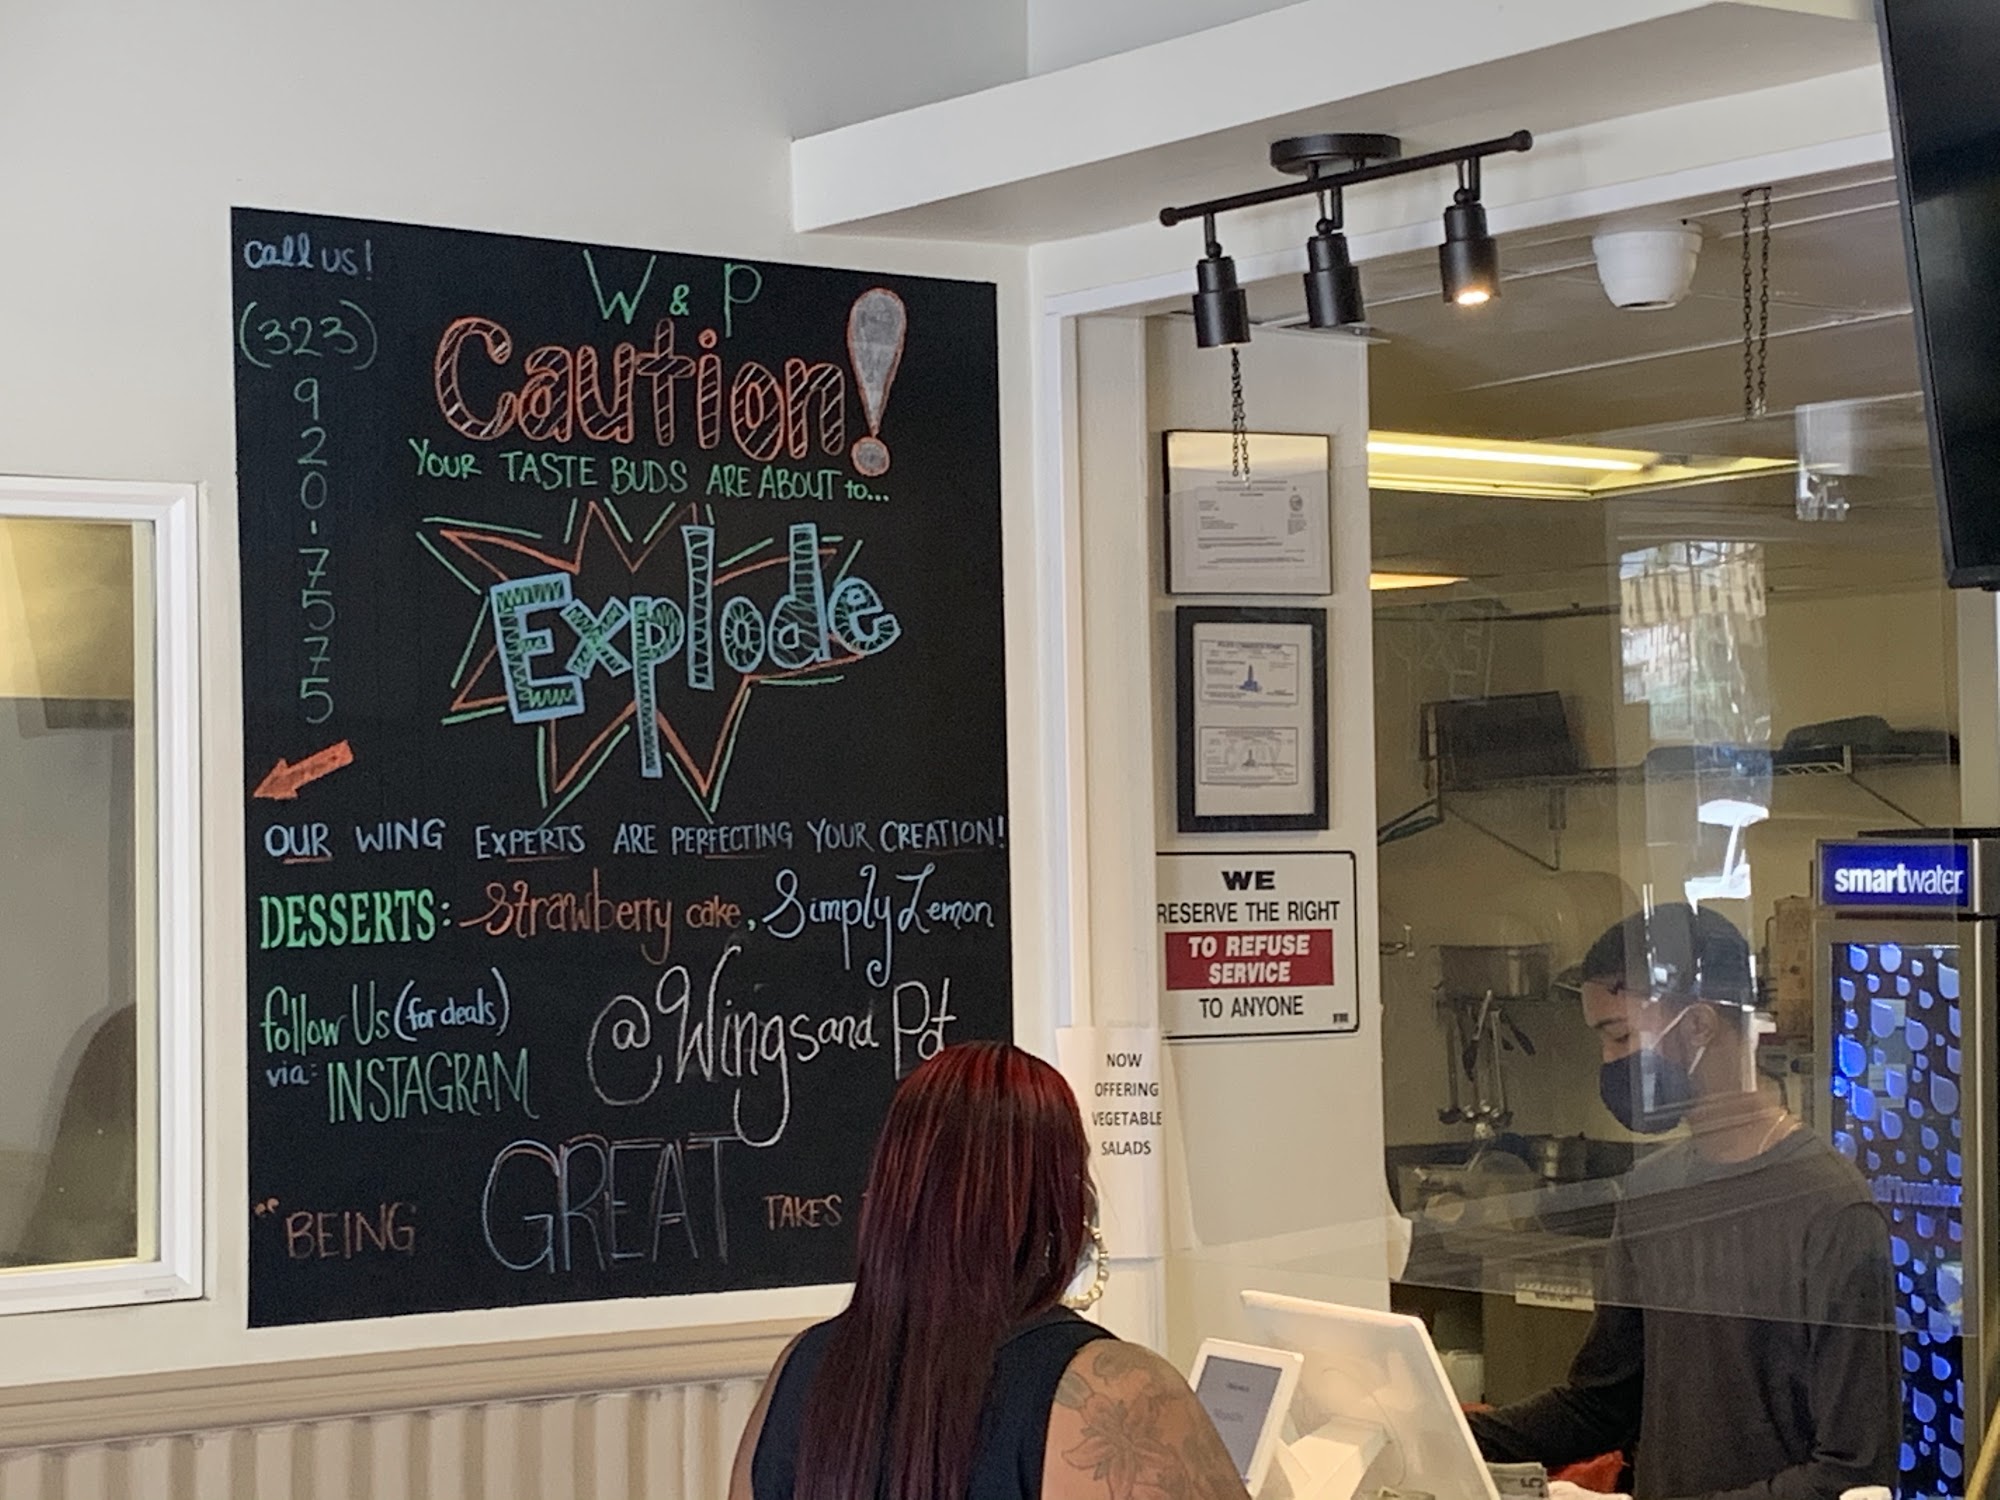 call us!
(323)
9
2
0
-
7
5
7
5
W & P
Caution!
YOUR TASTE BUDS ARE ABOUT to...
Explode
OUR WING EXPERTS ARE PERFECTING YOUR CREATION!
DESSERTS: Strawberry cake, Simply Lemon
follow Us (for deals)
via: INSTAGRAM
@Wingsand
"BEING GREAT TAKES
WE
RESERVE THE RIGHT
TO REFUSE
SERVICE
TO ANYONE
NOW
OFFERING
VEGETABLE
SALADS
smartwater